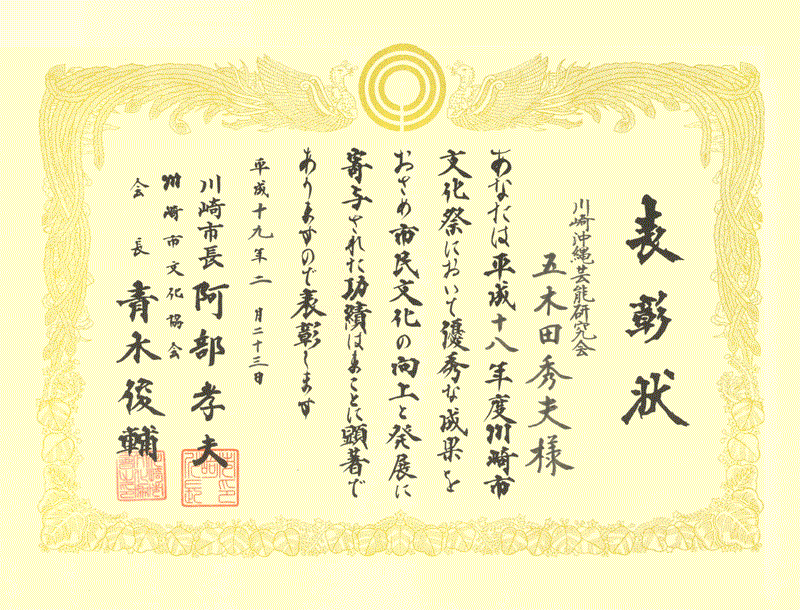 表彰状
川崎沖縄芸能研究会
五木田秀夫様
あなたは平成十八年度川崎市
文化祭において優秀な成果を
おさめ市民文化の向上と発展に
寄与された功績はまことに顕著で
ありますので表彰します
平成十九年二月二十三日
川崎市長 阿部孝夫
川崎市文化協会
会長 青木俊輔